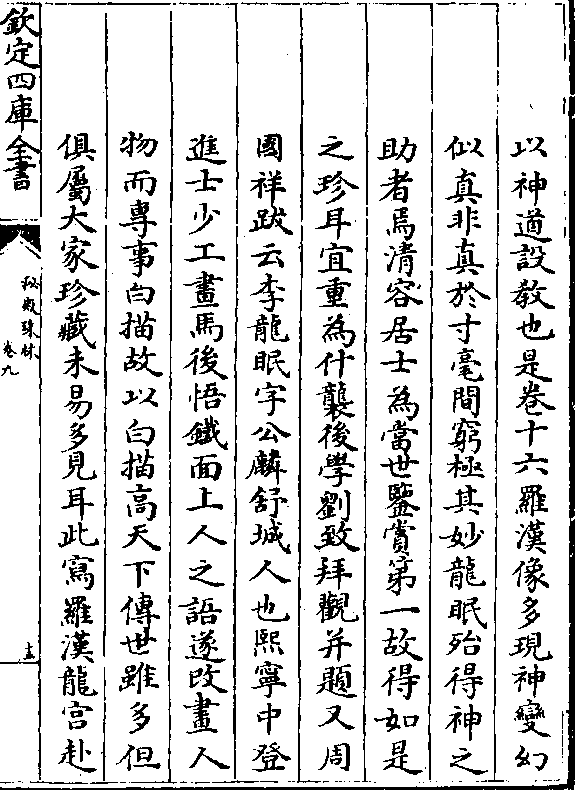 以神道設教也是卷十六羅漢像多現神變幻
似真非真於寸毫間窮極其妙龍眠殆得神之
助者焉清容居士為當世鑒賞第一故得如是
之珍耳宜重為什襲後學劉致拜觀并題又周
國祥跋云李龍眠字公麟舒城人也熙寧中登
進士少工畫馬後悟鐵面上人之語遂改畫人
物而專事白描故以白描高天下傳世雖多但
俱屬大家珍藏未易多見耳此寫羅漢龍宫赴
欽定四庫全書
秘殿珠林
卷九